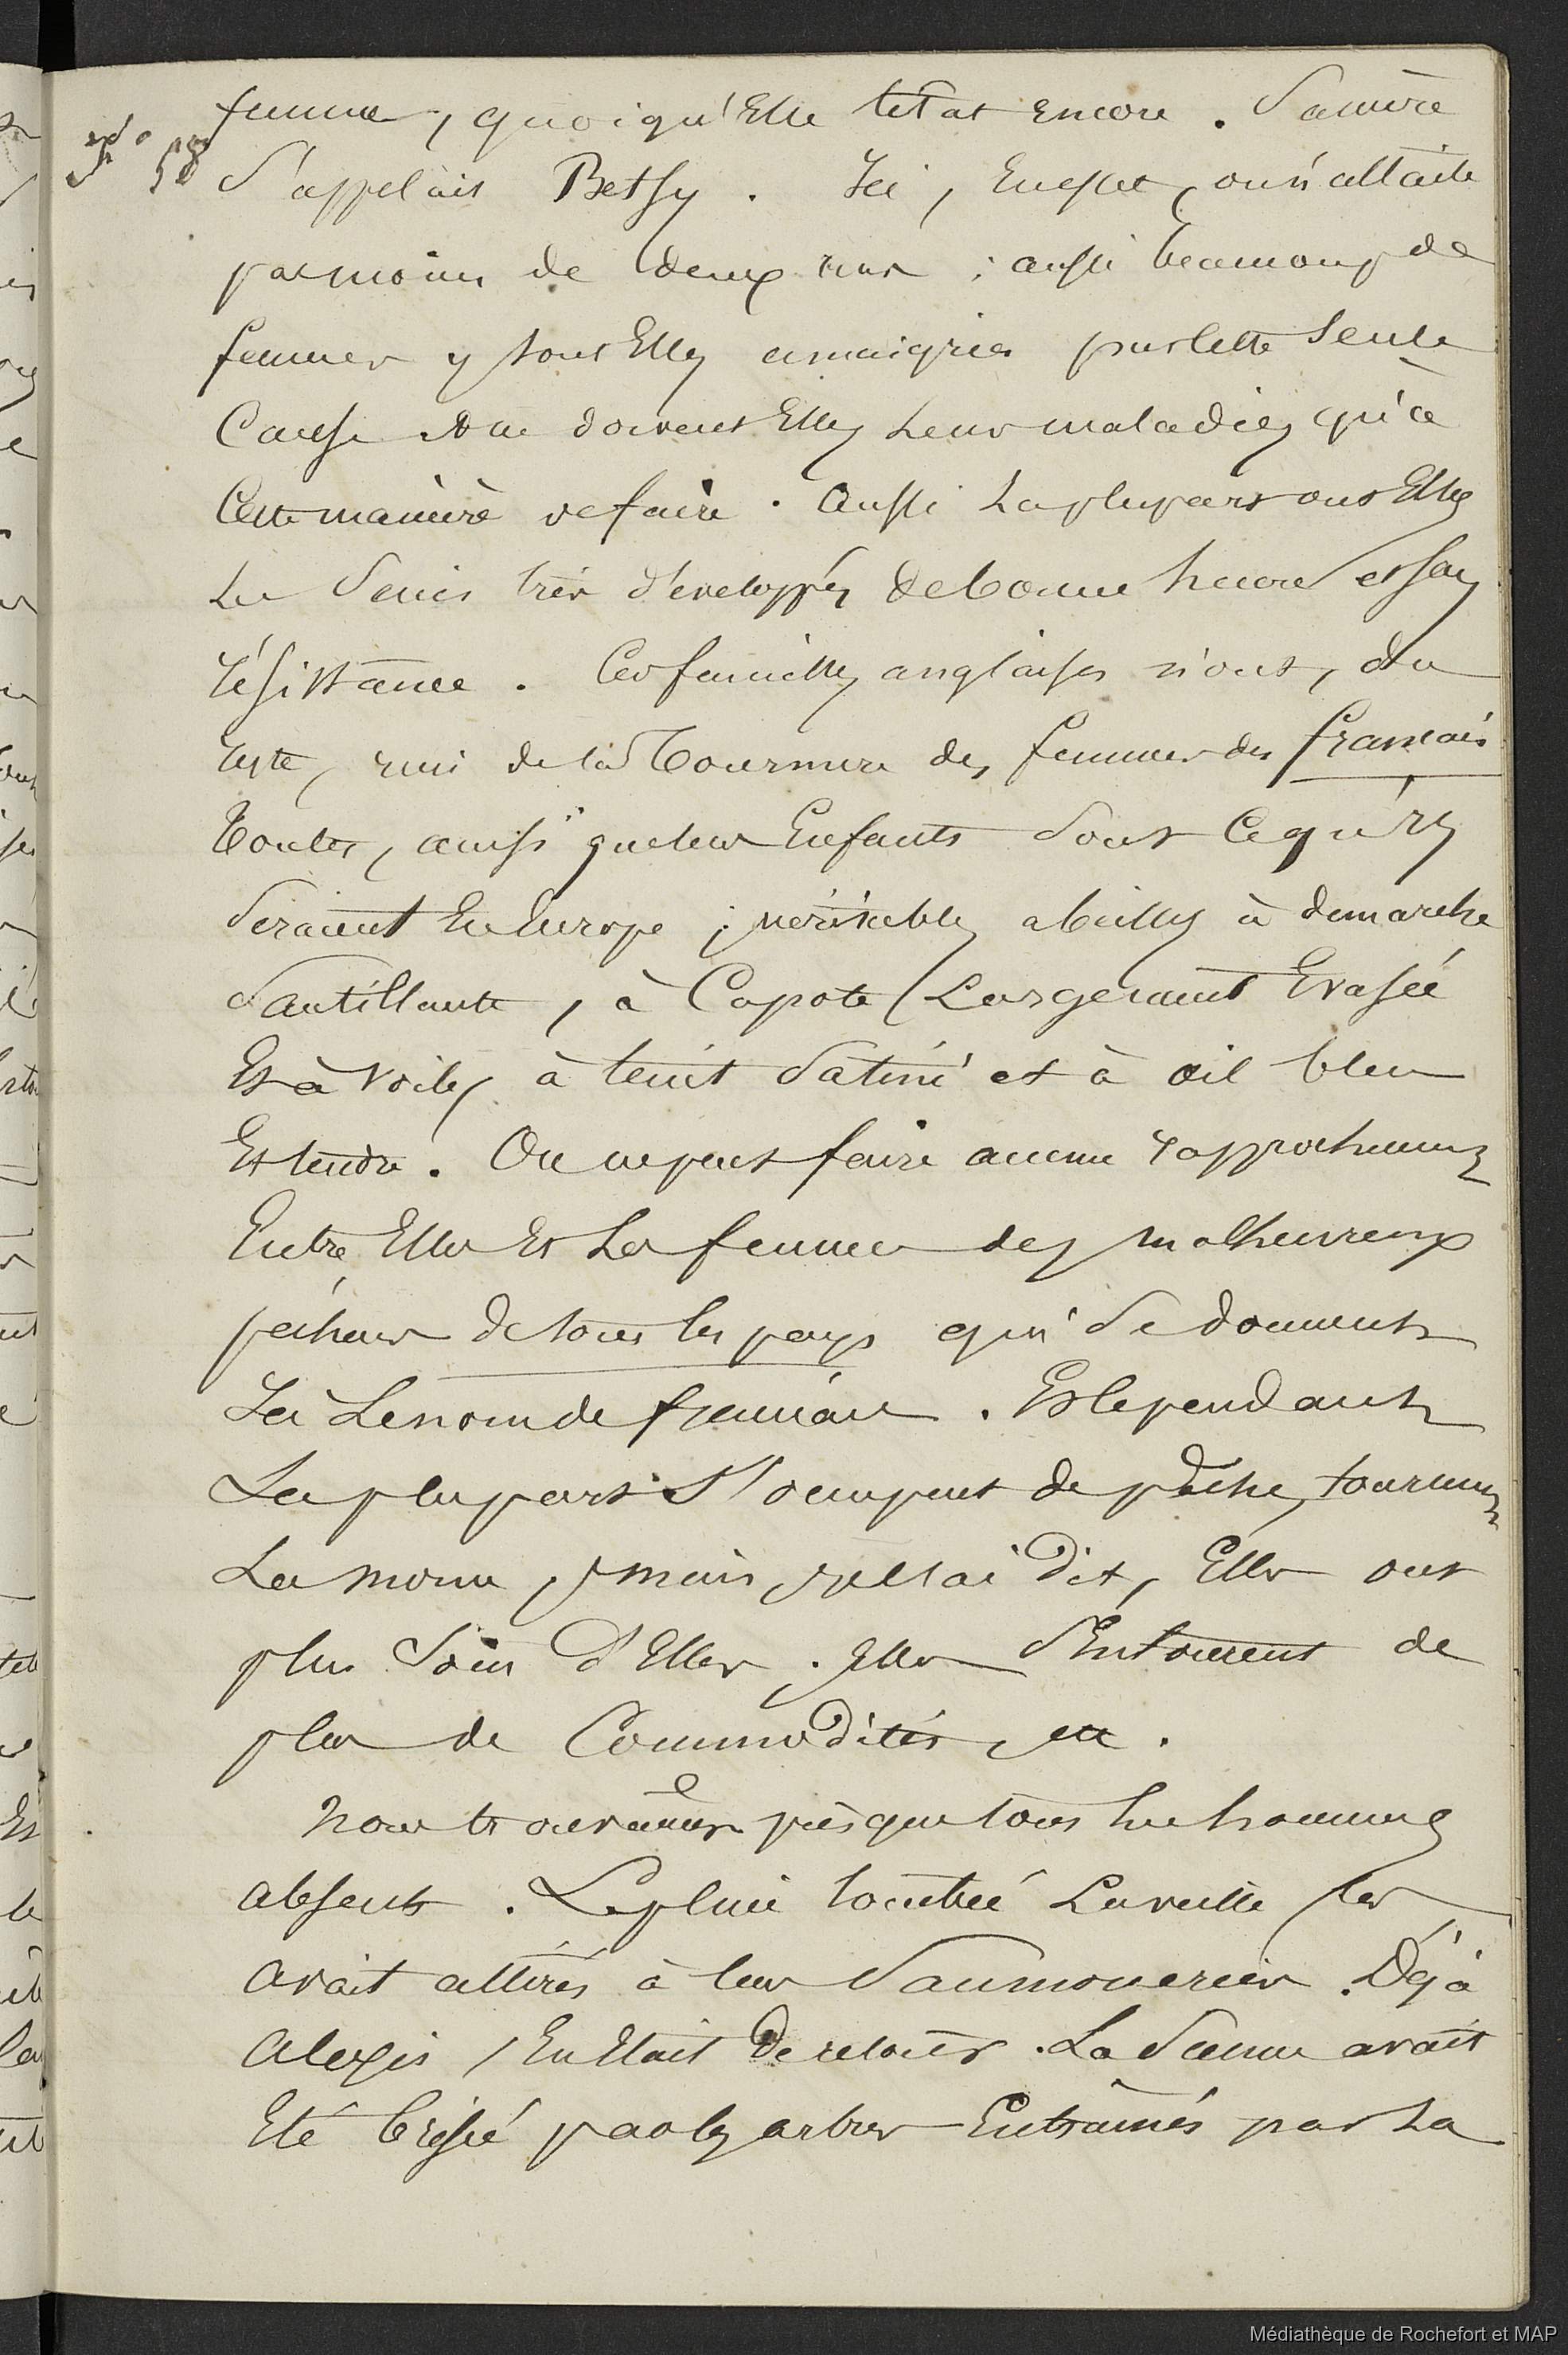 fo 58
femme, quoiqu'Elle tétat encore. Sa mère
S'appelait Betsy. Ici, En effet, on n'allaite
pas moins de deux ans ; aussi beaucoup de
femmes y sont Elles amaigries par cette Seule
Cause et ne doivent Elles Leurs maladies qu'à
Cette manière de faire. Aussi La plupart ont Elles
Les Seins très développés de bonne heure et sans
résistance. Ces familles anglaises n'ont, du
reste, rien de la Tournure des femmes des français
Toutes, ainsi que leurs Enfants Sont Ce qu'ils
Seraient En Europe ; véritables abeilles à demarche
Sautillante, à Capote Largement Evasée
Et à Voiles, à teint Satiné et à œil bleu
Et tendre. On ne peut faire aucun rapprochement
Entre Elles Et Les femmes des malheureux
pêcheurs de tous les pays qui Se donnent
Ici Le nom de français. Et Cependant
La plupart S'occupent de pêche, tournent
La morue, mais, je l'ai Dit, Elles ont
plus Soin d'Elles. Elles S'Entourent de
plus de Commodités, etc.
Nous trouvâmes presque tous les hommes
absents. La pluie tombée La veille les
avait attirés à leurs Saumoneries. Déjà
Alexis, En Etait De retour. La Senne avait
Eté brisée par les arbres Entrainés par La
Médiathèque de Rochefort et MAP